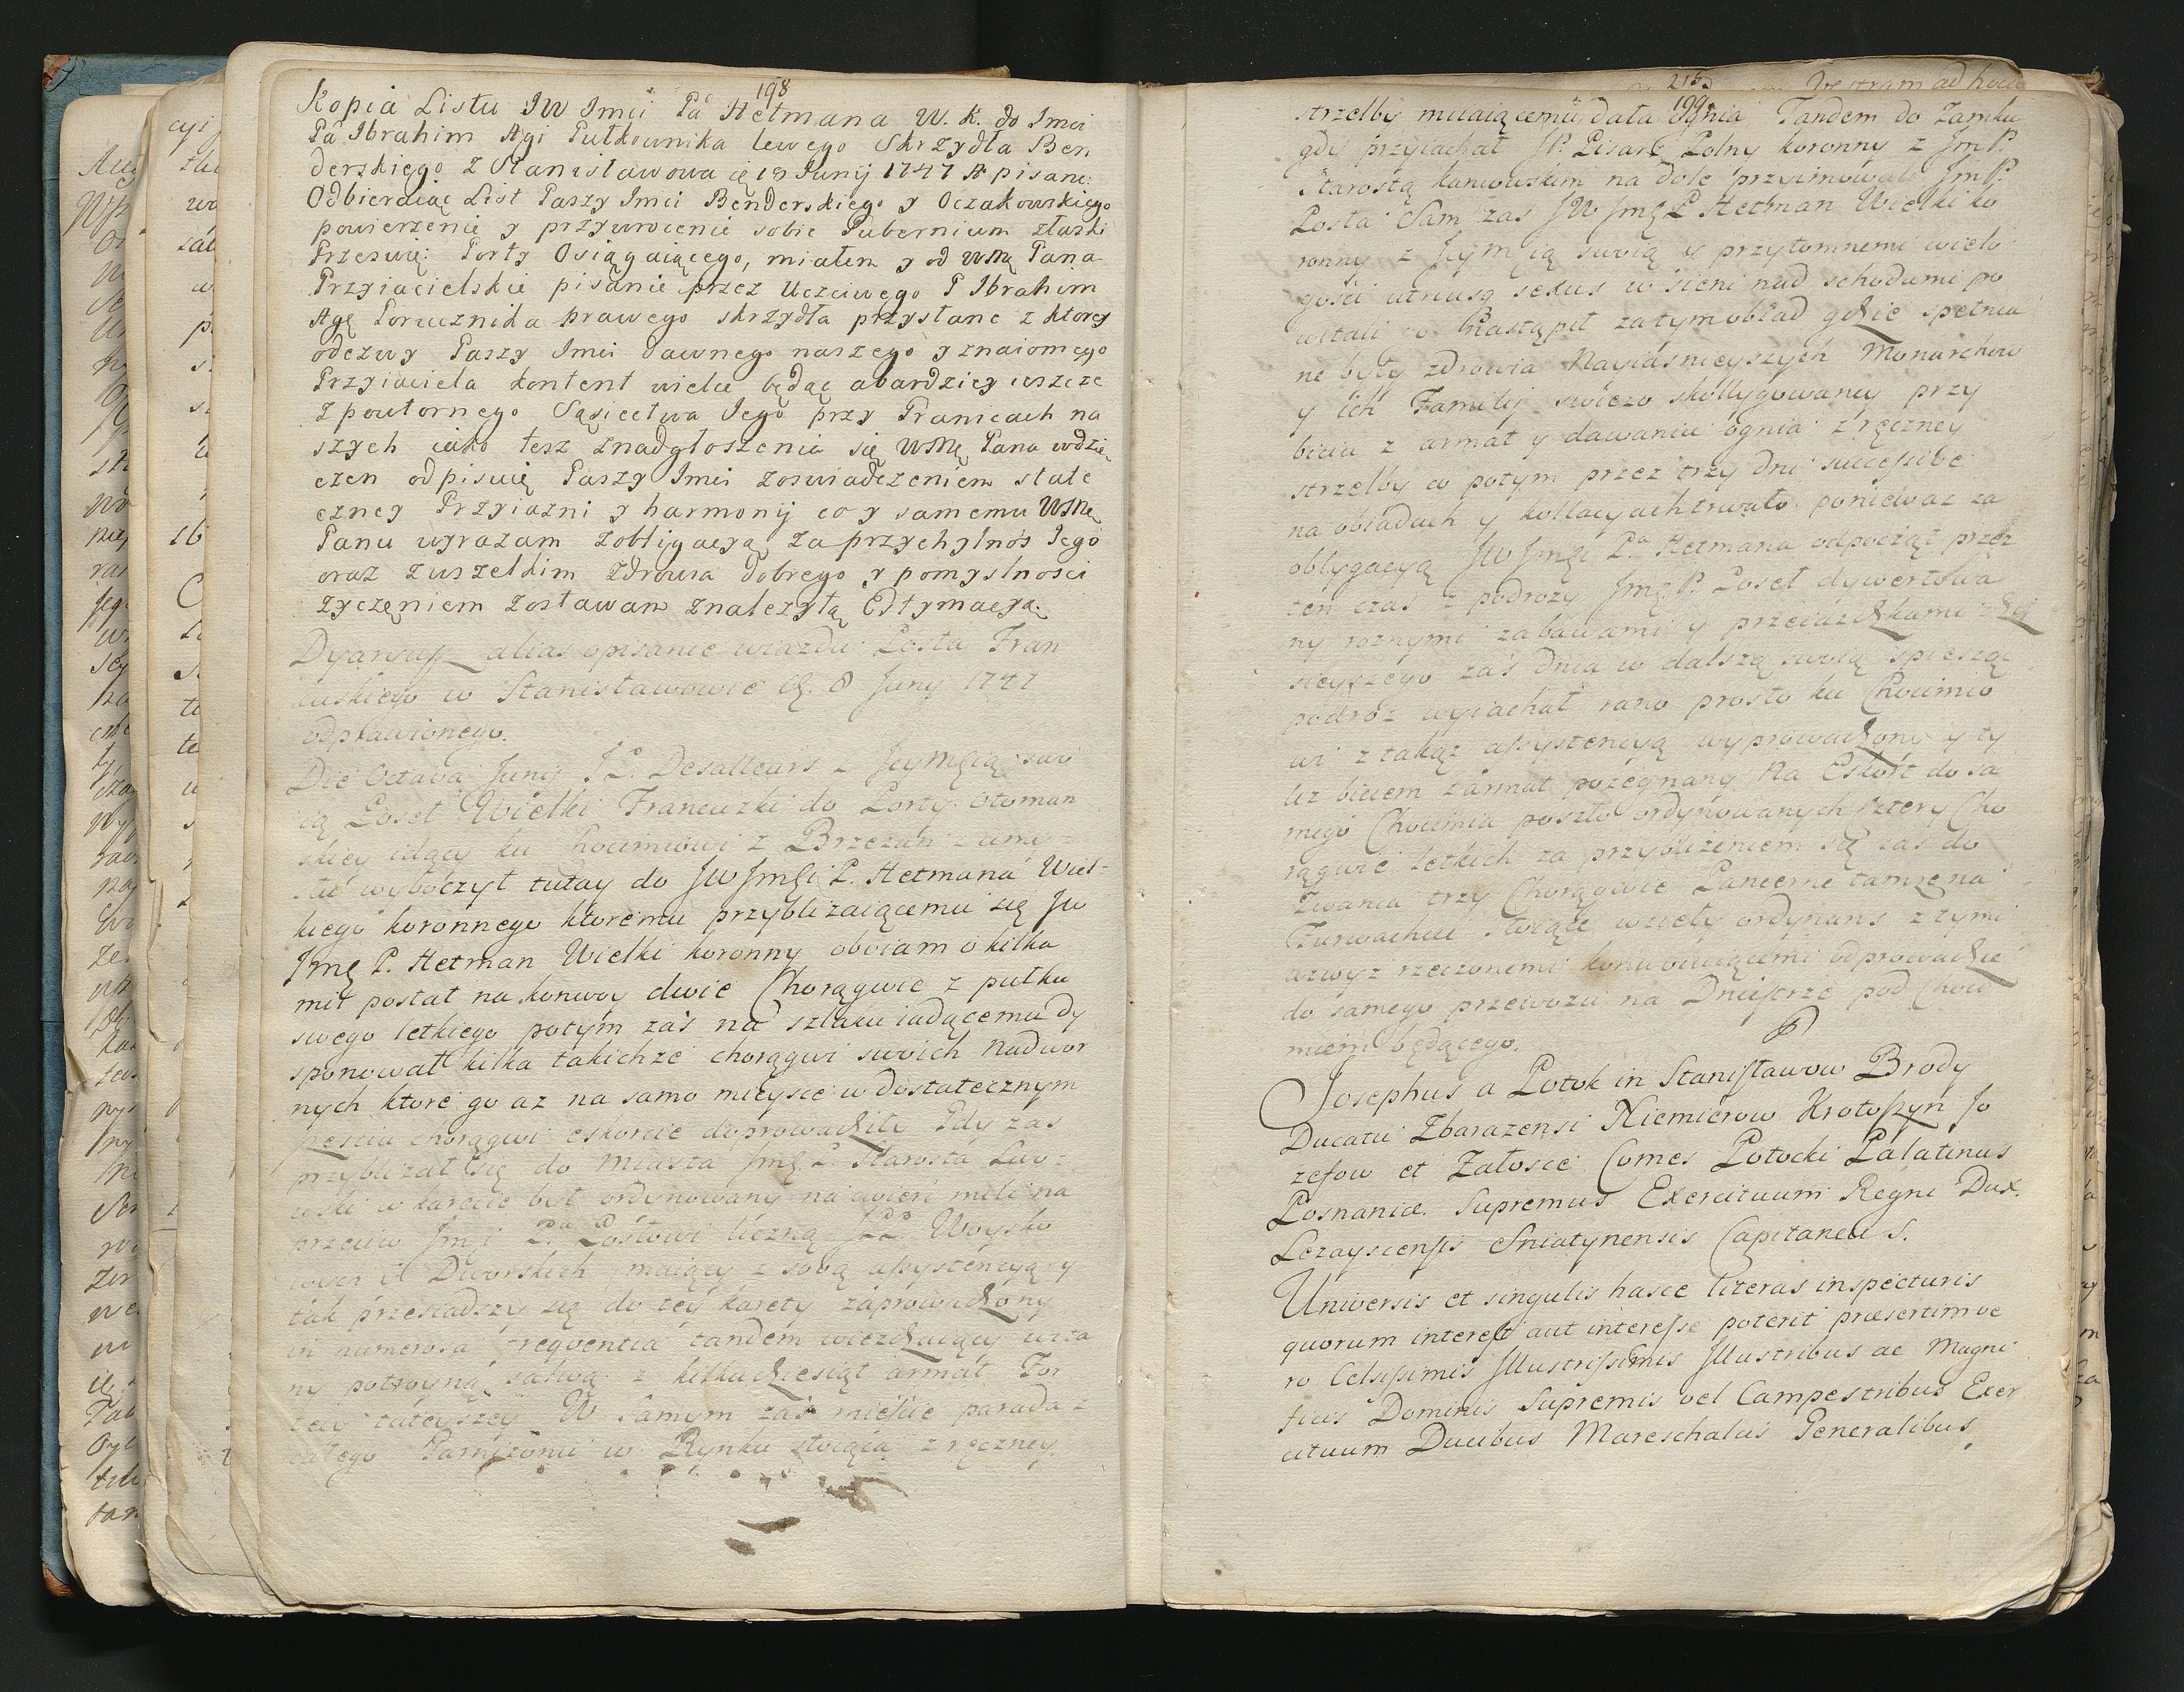 198
Kopia Listu JW Jmci Pa Hetmana W. K. do Jmci
Pa Ibrahim Agi Pułkownika lewego Skrzydła Ben
derskięgo z Stanisławowa 18 Junij 1747 A pisane:
Odbieraiąc List Paszy Jmci Benderskiego y Oczakowskięgo
powierzenie y przywrocenie sobie Gubernium złaski
Przeswię: Porty Osiągaiącego, miałem y od WMę Pana
Przyiacielskie pisanie przez Uczciwego P Ibrahim
Agę Porucznika prawego skrzydła przysłane z ktorey
odezwy Paszy Jmci dawnego naszego y znaiomego
Przyiaciela kontent wielce będąc abardziey ieszcze
z powtornego Sąsiectwa Jego przy Granicach na
szych iako tesz znadgłoszenia się WMę Pana wdzię
czen odpisuię Paszy Jmci zoswiadczeniem state
czney Przyiazni y harmonij co y samemu WMę
Panu wyrazam zobligacyą za przychylnos Jego
oraz zwszelkim zdrowia dobrego y pomyslnosci
zyczęniem zostawam znalezytą Estymacyą.
Dyaryusz alias opisanie wiazdu Posła Fran
cuskiego w Stanisławowie 8 Juny 1747
odprawionego.
Die Octava Junij J P. Desalleurs z Jeymęią swo
ią Poseł Wielki Francuzki do Porty Otoman
skiey idący ku Chocimowi z Brzezan umy=
slnie wyboczył tutay do JW Jmęi P. Hetmana Wiel=
kiego koronnego ktoremu przyblizaiącemu się JW
Jmę P. Hetman Wielki koronny oboiam o kilka
mil posłał na konwoy dwie Chorągwie z pułku
swego letkiego potym zaś na szlaku iadącemu dy
sponował kilka takichze chorągwi swoich nadwor
nych ktore go az na samo mieysce w dostatecznym
szesciu chorągwi eskorcie doprowadziły Gdy zas
przyblizał się do Miasta Jmę P. Starosta Lwo=
wski w karecie był ordynowany na cwierć mili na
przeciw Jmęi Pa Posłowi liczną JPP. Woysko
wych i Dworskich maiący z sobą assystencyą y
tak przesiadszy się do tey karety zaprowadzony
in numerosa frequentia tandem wiezdzaiący wita
ny potroyną salwą z kilkudziesiąt armat For
tecy tuteyszey W samym zaś miescie parada z
całego Garnizonu w Rynku stoiąca z ręczney
215
199
strzelby miiaiącemu dała Ognia Tandem do Zamku
gdy przyiachał JP. Pisarz Polny koronny z JmP.
Starostą kaniowskim na dole przyimowali JmP.
Posła Sam zas JW Jmę P Hetman Wielki ko
ronny z Jeymęią swoią y przytomnemi wielo
gości utriusq sexus w sieni nad schodami po
witali go Nastąpił zatym obiad gdzie spełnia
ne były zdrowia Nayiasnieyszych Monarchow
y ich Familij swiezo skolligowaney przy
biciu z armat y dawaniu ognia z ręczney
strzelby co potym przez trzy dni successive
na obiadach y kollacyach trwało poniewaz za
obligacyą JW Jmęi Pa Hetmana odpoczął przez
ten czas z podrozy Jmę P. Poseł dywertowa
ny roznymi zabawami y przeiazdzkami dzi
sieyszego zaś Dnia w dalszą swoią spiesząc
podróz wyiachał rano prosto ku Chocimio
wi z takąz assystencyą wyprowadzony y ty
luz biciem z armat pozegnany Na Eskort do sa
mego Chocimia poszło ordynowanych sztery Cho
rągwie letkich za przyblizeniem się zas do
Zwania trzy Chorągwie Pancerne tamzę na
Furwachcie stoiące wzieły ordynans z tymi
wzwyz rzeczonemi konwoiuiącemi odprowadzić
do samego przewozu na Dniestrze pod Choci
miem będącego.
Josephus a Potok in Stanisławow Brody
Ducatu Zbarazensi Niemierow Krotoszyn Jo
zefow et Załosce Comes Potocki Palatinus
Posnaniæ. Supremus Exercituum Regni Dux.
Lezaysciensis Sniatynensis Capitaneus.
Universis et singulis hasce literas inspecturis
quorum interest aut interesse poterit præsertim ve
ro Celsissimis Illustrissimis Illustribus ac Magni
ficis Dominis Supremis vel Campestribus Exer
cituum Ducibus Mareschalis Generalibus